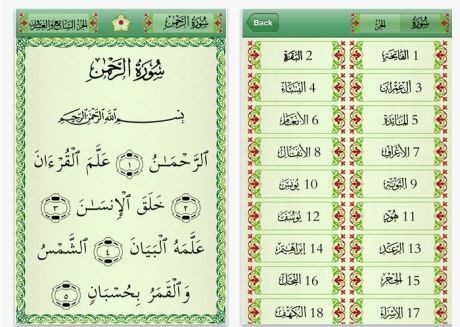 الجزء السابع والعشرون
سُورَةُ الرَّحْمٰن
سُورَةُ الرَّحْمٰن
بِسْمِ ٱللَّهِ ٱلرَّحْمَٰنِ ٱلرَّحِيمِ
ٱلرَّحْمَـٰنُ ١ عَلَّمَ ٱلْقُرْءَانَ
٢ خَلَقَ ٱلْإِنسَـٰنَ ٣
عَلَّمَهُ ٱلْبَيَانَ ٤ ٱلشَّمْسُ
وَٱلْقَمَرُ بِحُسْبَانٍ ٥
Back
الجزء
سُورَة
1 الفَاتِحَة
2 البَقَرَة
3 آل عِمْرَان
4 النِّسَاء
5 المَائدة
6 الأنعَام
7 الأعرَاف
8 الأنفَال
9 التوبَة
10 يُونس
11 هُود
12 يُوسُف
13 الرّعد
14 إبراهِيم
15 الحِجر
16 النّحل
17 الإسرَاء
18 الكهف